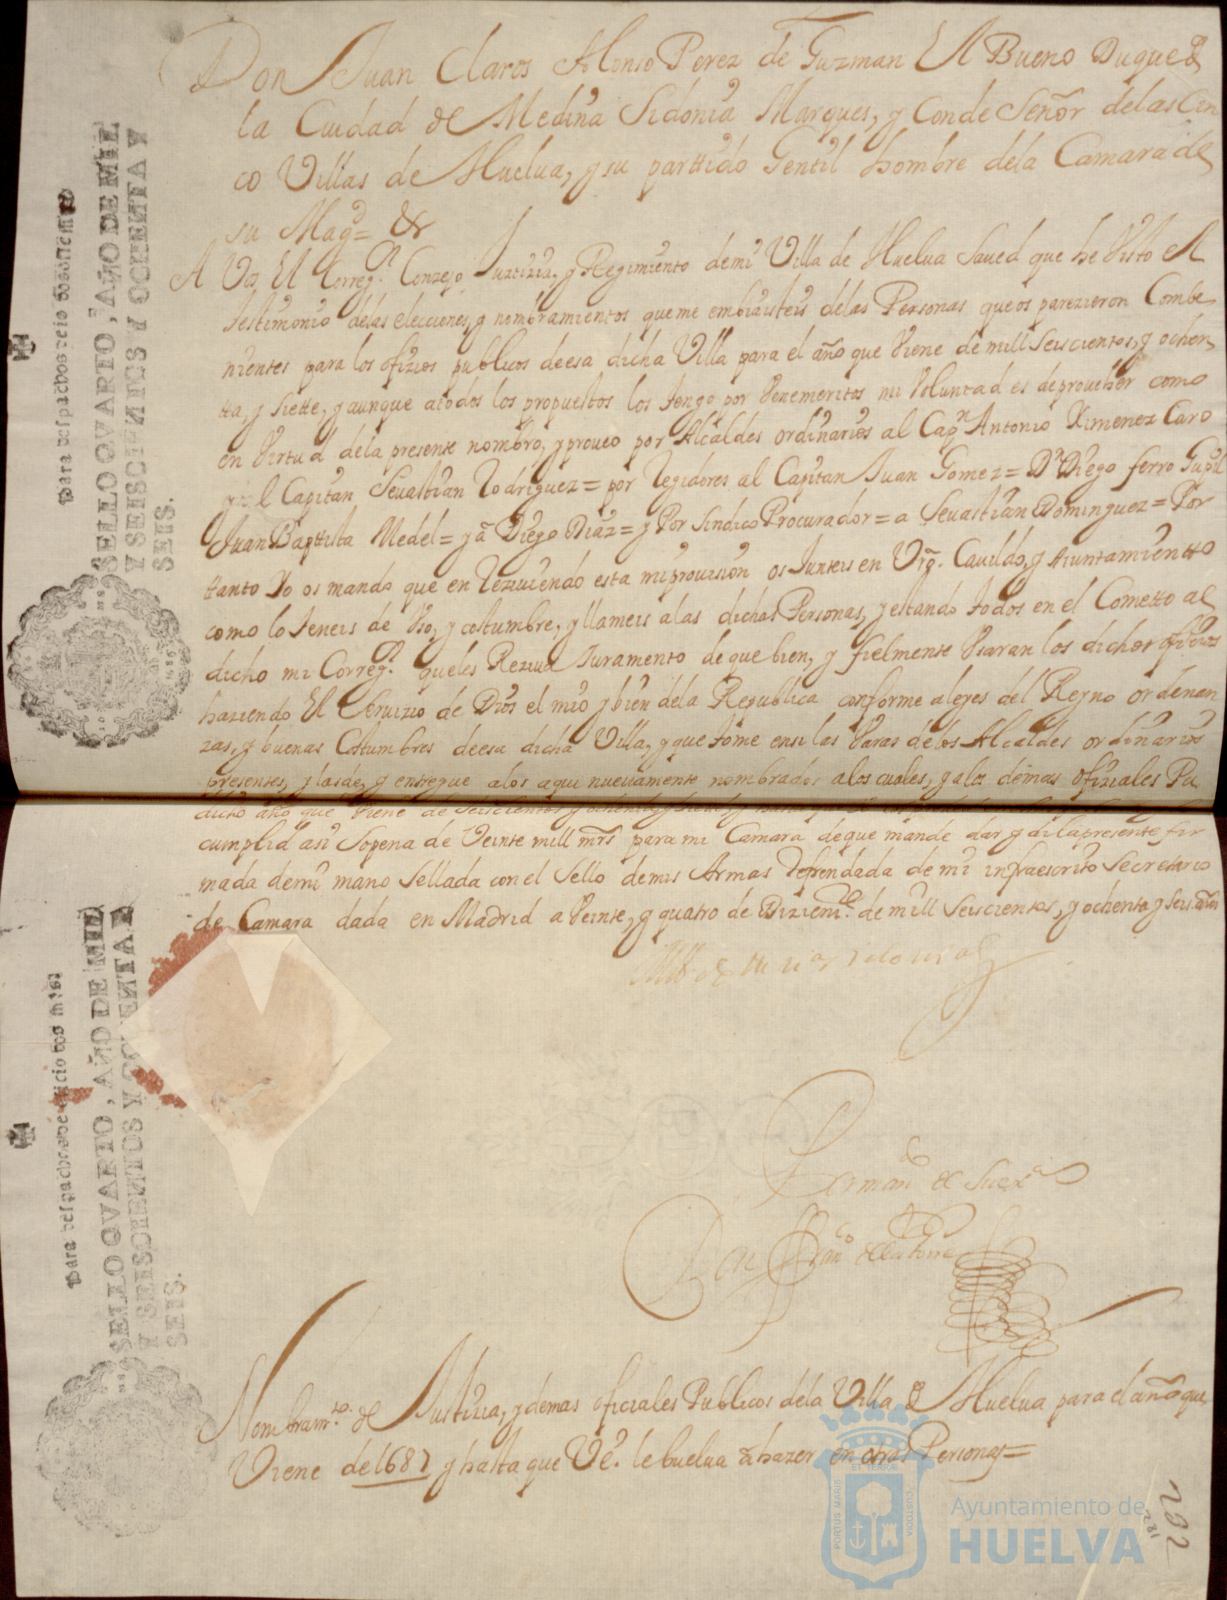 Don Juan Claros Alonso Perez de Guzman El Bueno Duque de
la Ciudad de Medina Sidonia Marques, y Conde Señor delas Cin
co Villas de Huelua, y su parttido Gentil hombre dela Camara de
su Magd= &
A Vos El Correg.r Conzejo Justizia, y Regimiento demi Villa de Huelua Saued que he Visto el
testimonio delas elecciones, y nombramientos queme embiasteis delas Personas queos parezieron Combe
nientes para los ofizios publicos deesa dicha Villa para el año que Viene de mill Seiscientos, y ochen
tta, y Siette, y aunque atodos los propuestos los tengo por Venemeritos mi Voluntad es deproueher como
en Virtud dela presente nombro, y proveo por Alcaldes ordinarios al Cap.n Antonio Ximenez Caro
y al Capitan Sevastian Rodriguez= por Regidores al Capitan Juan Gomez= Dn Diego ferro
Juan Baptista Medel= y a Diego Diaz= y Por Sindico Procurador= a Sevastian Dominguez= Por
ttanto Yo os mando que en Reziuiendo esta mi prouision os Junteis en Vro. Cauildo, y Aiuntamientto
como lo teneis de Vso, y costumbre, y llameis alas dichas Personas, y estando todos en el Cometto al
dicho mi Correg.r queles Reziua Juramento de que bien, y fielmente Vsaran los dichos ofizios
haziendo El Seruizio de Dios el mio y bien dela Republica conforme aleyes del Reyno ordenan
zas, y buenas Costumbres deesa dicha Villa, y que tome ensi las Varas delos Alcaldes ordinarios
presentes, y lasde, y entregue alos aqui nueuamente nombrados alos cuales, y alos demas ofiziales Pu
dicho año que Viene de Seiscientos y ochenta y siete
cumplid asi Sopena de Veinte mill mrs para mi Camara deque mande dar y di lapresente fir
mada demi mano Sellada con el Sello demis Armas Refrendada de mi infraescrito Secretario
de Camara dada en Madrid a Veinte, y quatro de Diziembe. de mill Seiscientos, y ochenta y seis años
Por
Don
Nombram.to de Justizia, y demas oficiales Publicos dela Villa de Huelua para el año que
Viene de 1687 y hasta que Ve. le buelua a hazer en otras Personas=
Para despachos de oficio dos mrs
SELLO QVARTO, AÑO DE MIL
Y SEISCIENTOS Y OCHENTA Y
SEIS.
Para despachos de oficio dos mrs
SELLO QVARTO, AÑO DE MIL
Y SEISCIENTOS Y OCHENTA Y
SEIS.
PORTUS MARIS
ET TERRAE
CUSTODIA
Ayuntamiento de
HUELVA
182